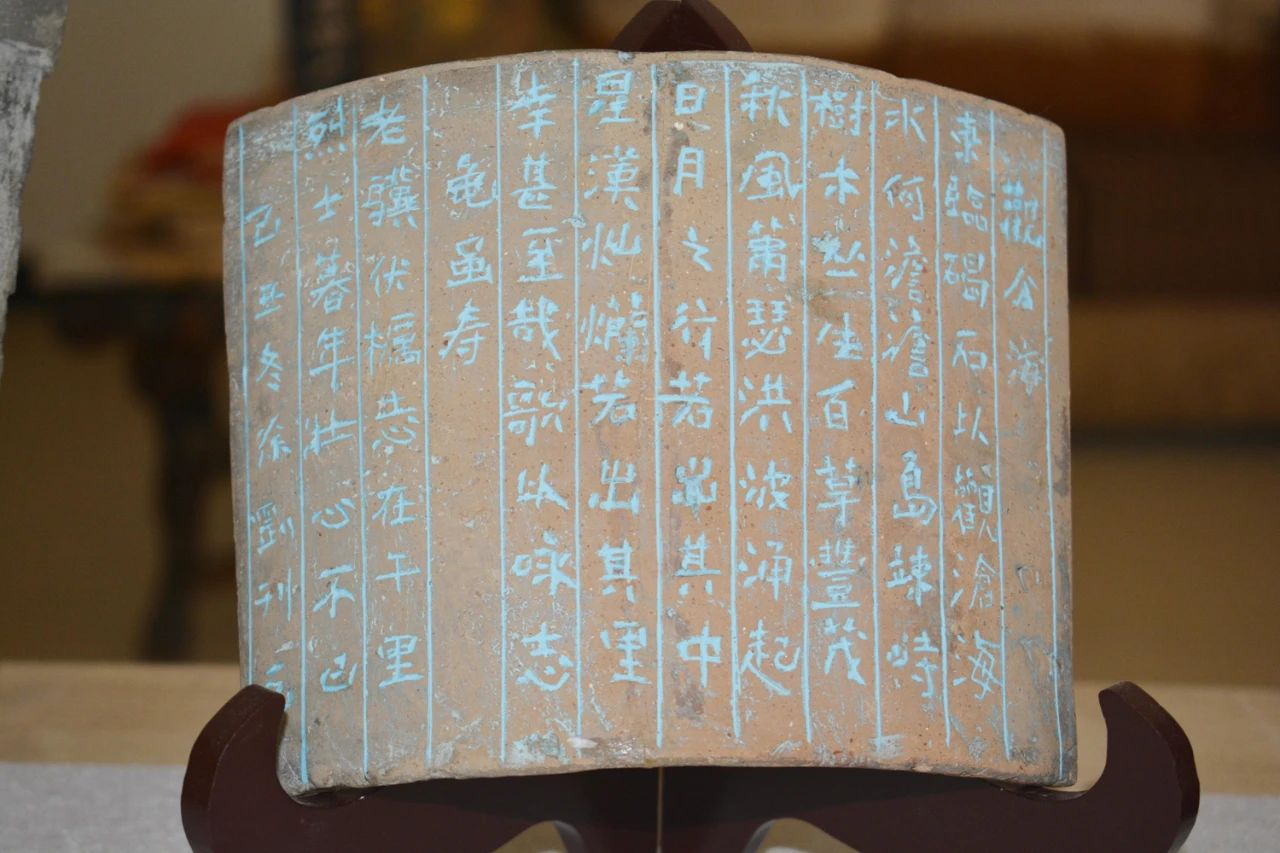 觀仓海
東臨碣石以觀滄海
水何澹澹山島竦峙
樹木丛生百草豐茂
秋風萧瑟洪波涌起
日月之行若出其中
星漢灿爛若出其里
幸甚至哉歌以咏志
龜虽寿
老驥伏櫪志在千里
烈士暮年壮心不已
己丑冬 劉刊